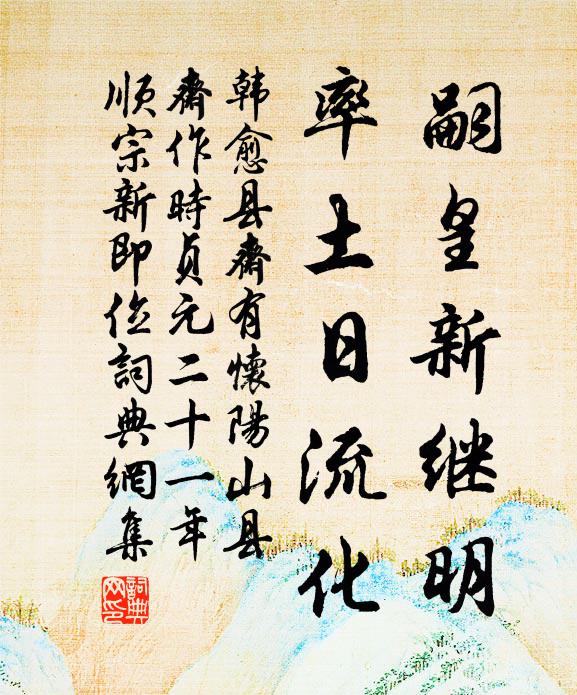 嗣皇新继明
率土日流化
韩愈县齋有懷陽山县
齋作時貞元二十一年
順宗新即位詞典網集
詞典网印